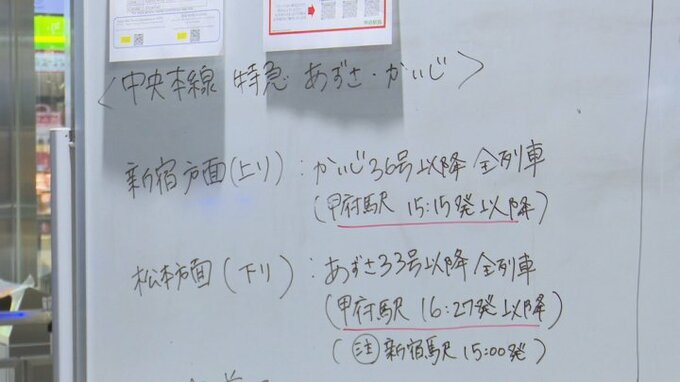 <中央本線 特急 あずさ・かいじ>
新宿方面(上り):かいじ36号以降 全列車
(甲府駅 15:15発以降)
松本方面(下り):あずさ33号以降 全列車
(甲府駅 16:27発以降)
(㊟新宿駅15:00発)